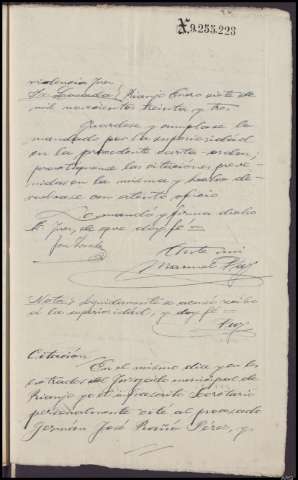 A.9.255.223
Providencia Juez
Sr. Losada / Rianjo Enero siete de
mil novecientos treinta y tres
Guardese y cumplase lo
mandado por la superioridad
en la precedente carta-orden,
practiquense las citaciones preve-
nidas en la misma y hecho de-
vuelvase con atento oficio
Lo mando y firma dicho
Sr. Juez, de que doy fé=
Ante mi
Manuel
Nota: Seguidamente se acusó recibo
á la superioridad, y doy fé=
Citación
En el mismo dia y en los
estrados del Juzgado municipal de
Rianjo yo el infrascrito Secretario
personalmente cité al procesado
Germán José Roña Pérez, y